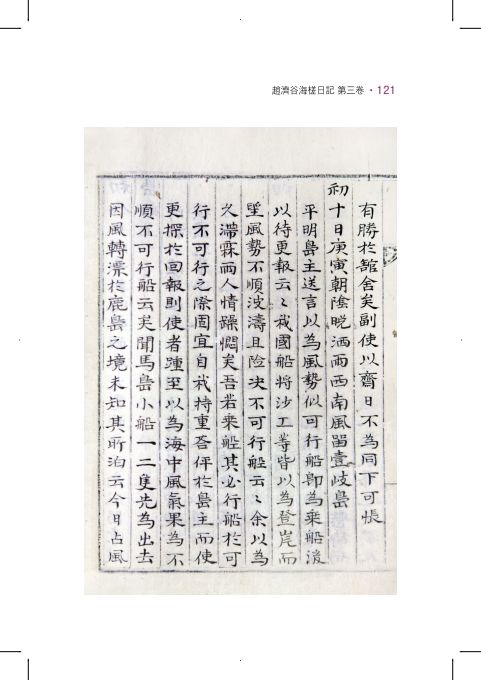 趙濟谷海槎日記 第三卷 · 121
有勝於舘舍矣副使以齋日不為同下可悵
初十日庚寅朝陰晩洒雨西南風留壹岐島
平明島主送言以為風勢似可行船卽為乘船後
以待更報云〻我國船將沙工等皆以為登岸而
望風勢不順波濤且險决不可行船云〻余以為
久滯霖雨人情躁悶矣吾若乘船其必行船於可
行不可行之際固宜自我持重答伻於島主而使
更探於回報則使者踵至以為海中風氣果為不
順不可行船云矣聞馬島小船一二隻先為出去
因風轉漂於鹿島之境未知其所泊云今日占風